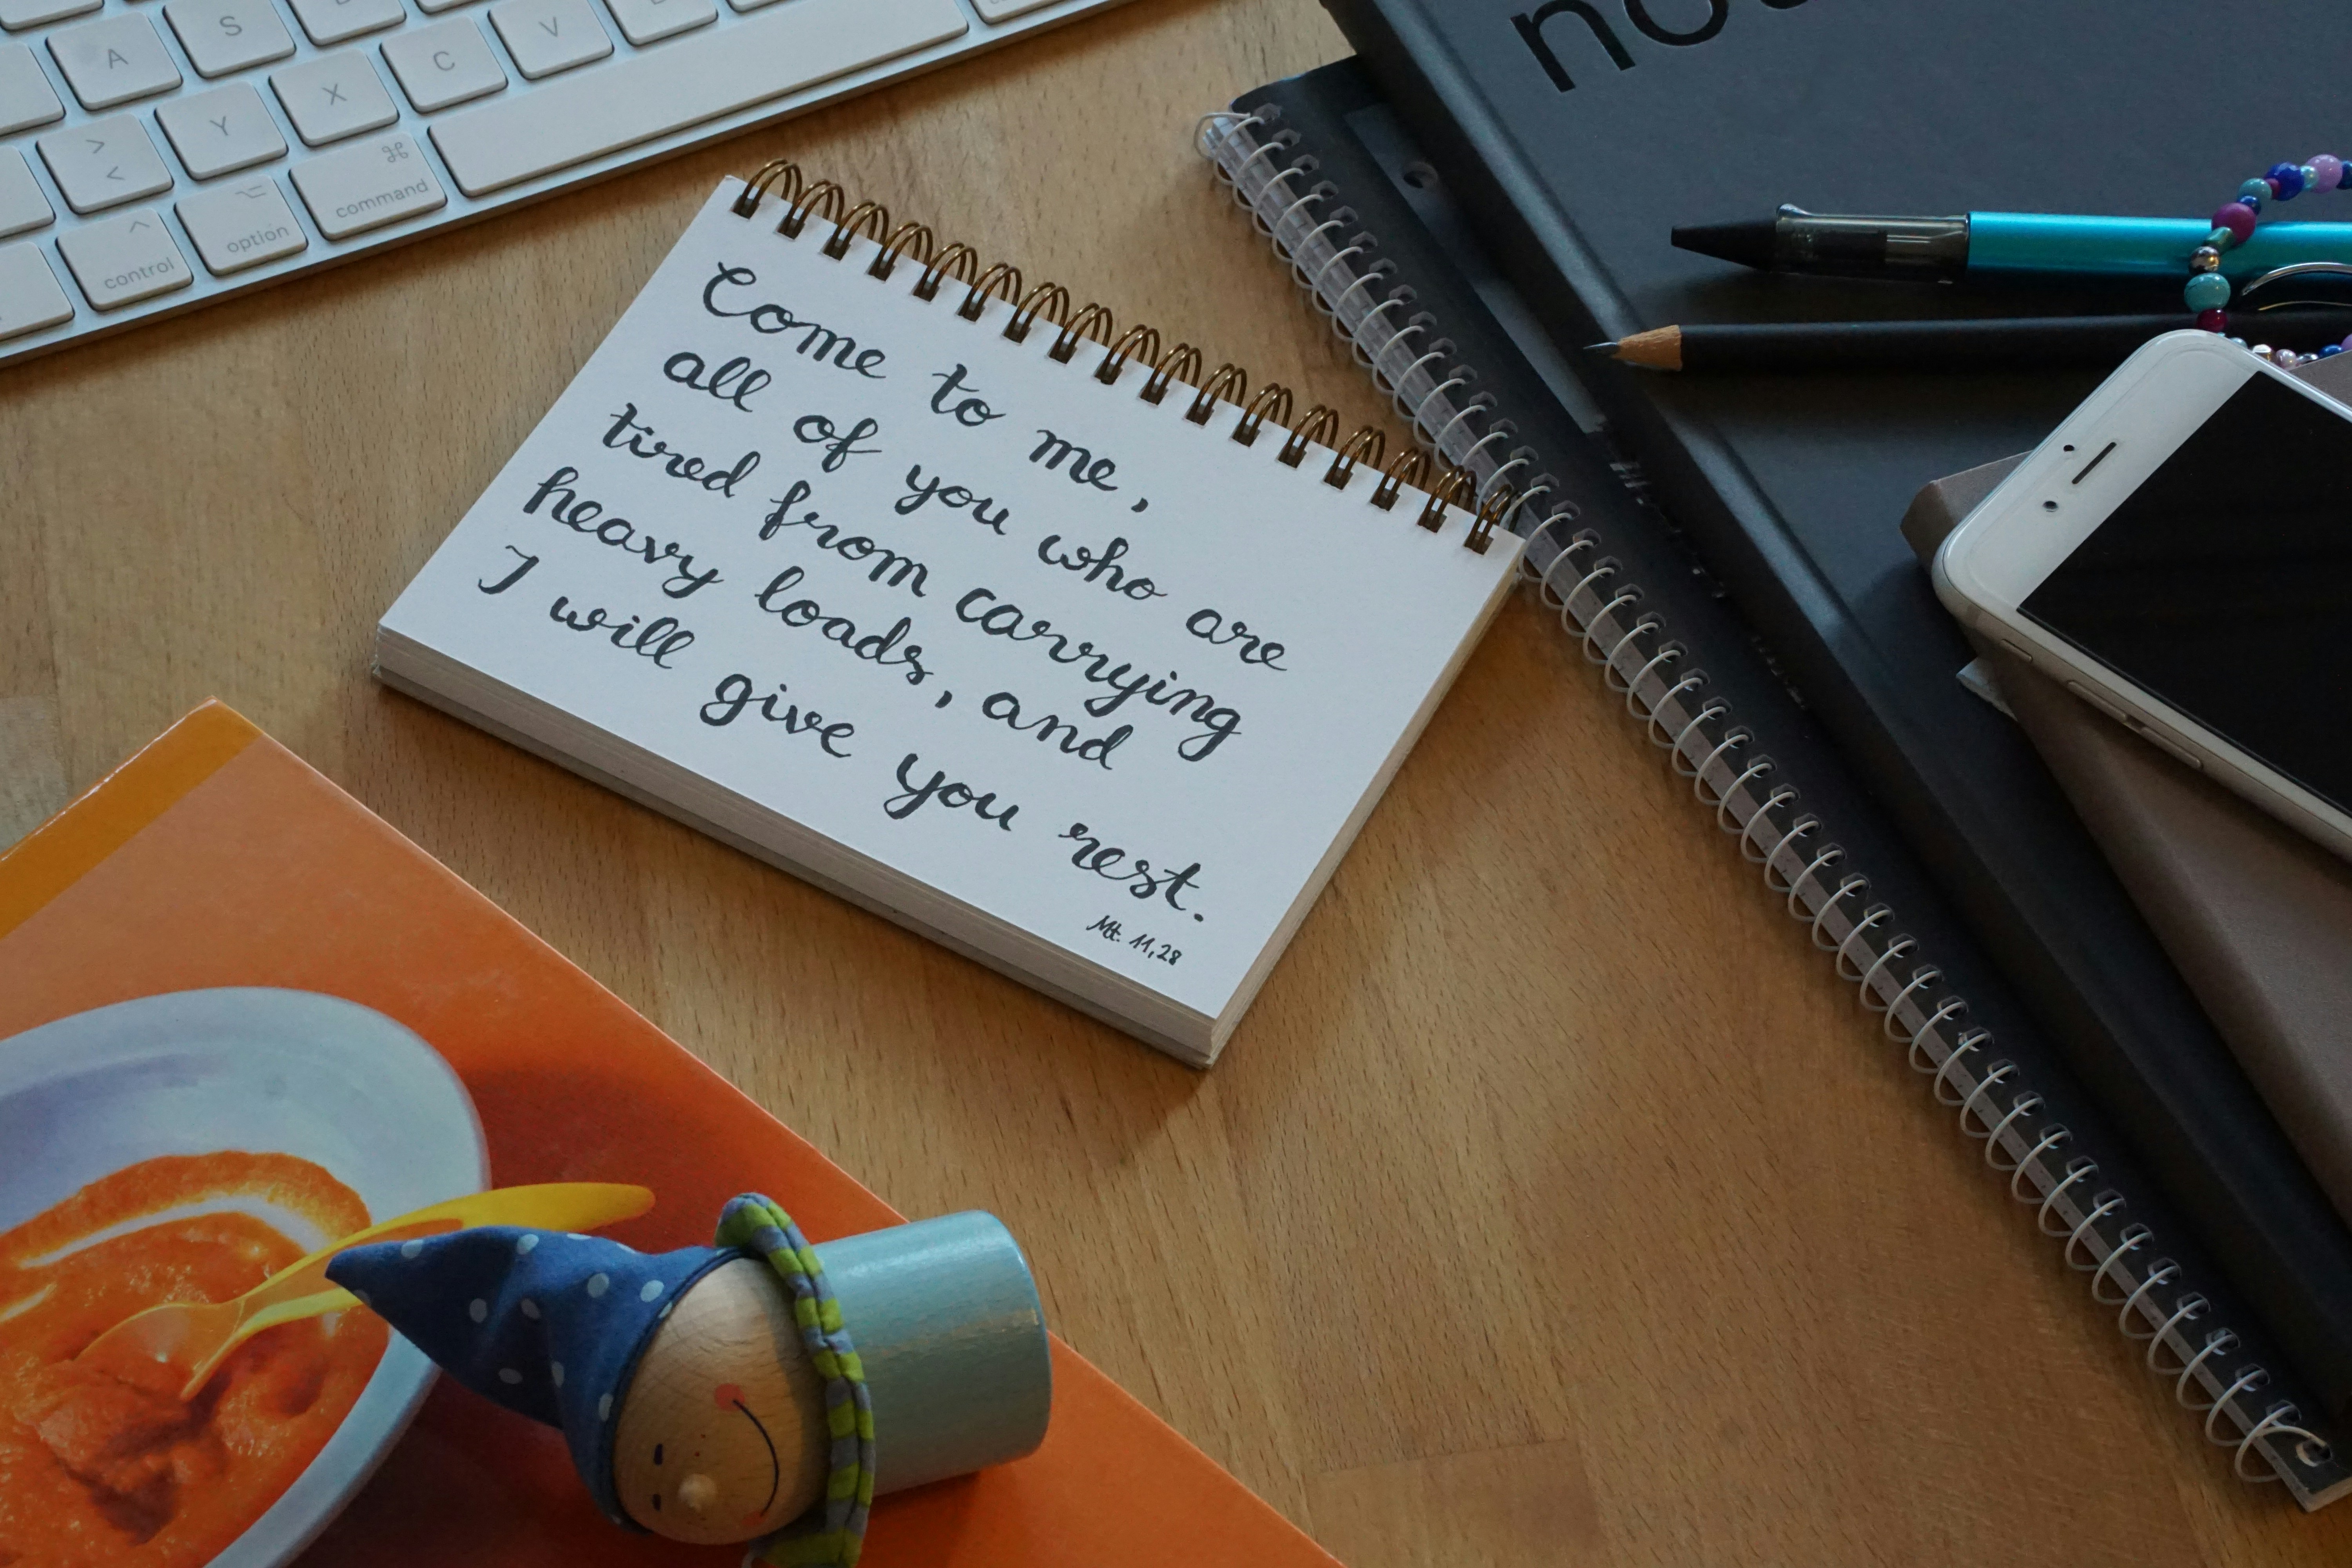 Come to me,
all of you who are
tired from carrying
heavy loads, and
I will give you rest.
Mt. 11,28
A
S
C
V
X
Y
>
<
⌘
command
⌥
option
^
control